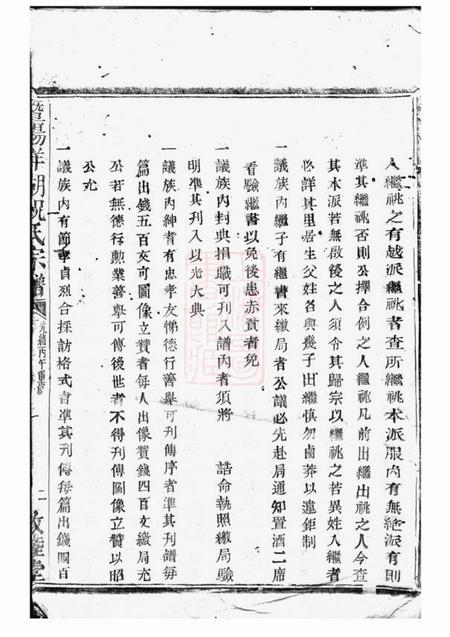 人繼祧之有越派繼祧者查所繼祧本派服內有無絶派有則
準其繼祧否則公擇合例之人繼祧凡前出繼出祧之人今查
其本派若無啟後之人須令其歸宗以繼祧之若異姓入繼者
必詳其里居生父姓名與幾子出繼慎勿鹵莽以違鉅制
一議族內繼子有繼書來繳局者公議必先赴局通知置酒二席
看驗繼書以免後患赤貧者免
一議族內封典捐職可刊入譜內者須將 誥命執照繳局驗
明準其刊入以光大典
一議族內紳耆有忠孝友悌德行善舉可刊傳序者準其刊譜每
篇出錢五百文可圖像立贊者每人出像贊錢四百文繳局充
公若無德行勲業善舉可傳後世者不得刊傳圖像立贊以昭
公允
一議族內有節孝貞烈合採訪格式者準其刊傳每篇出錢四百
暨陽祥湖祝氏宗譜
光緒丙午重修
二
敦睦堂